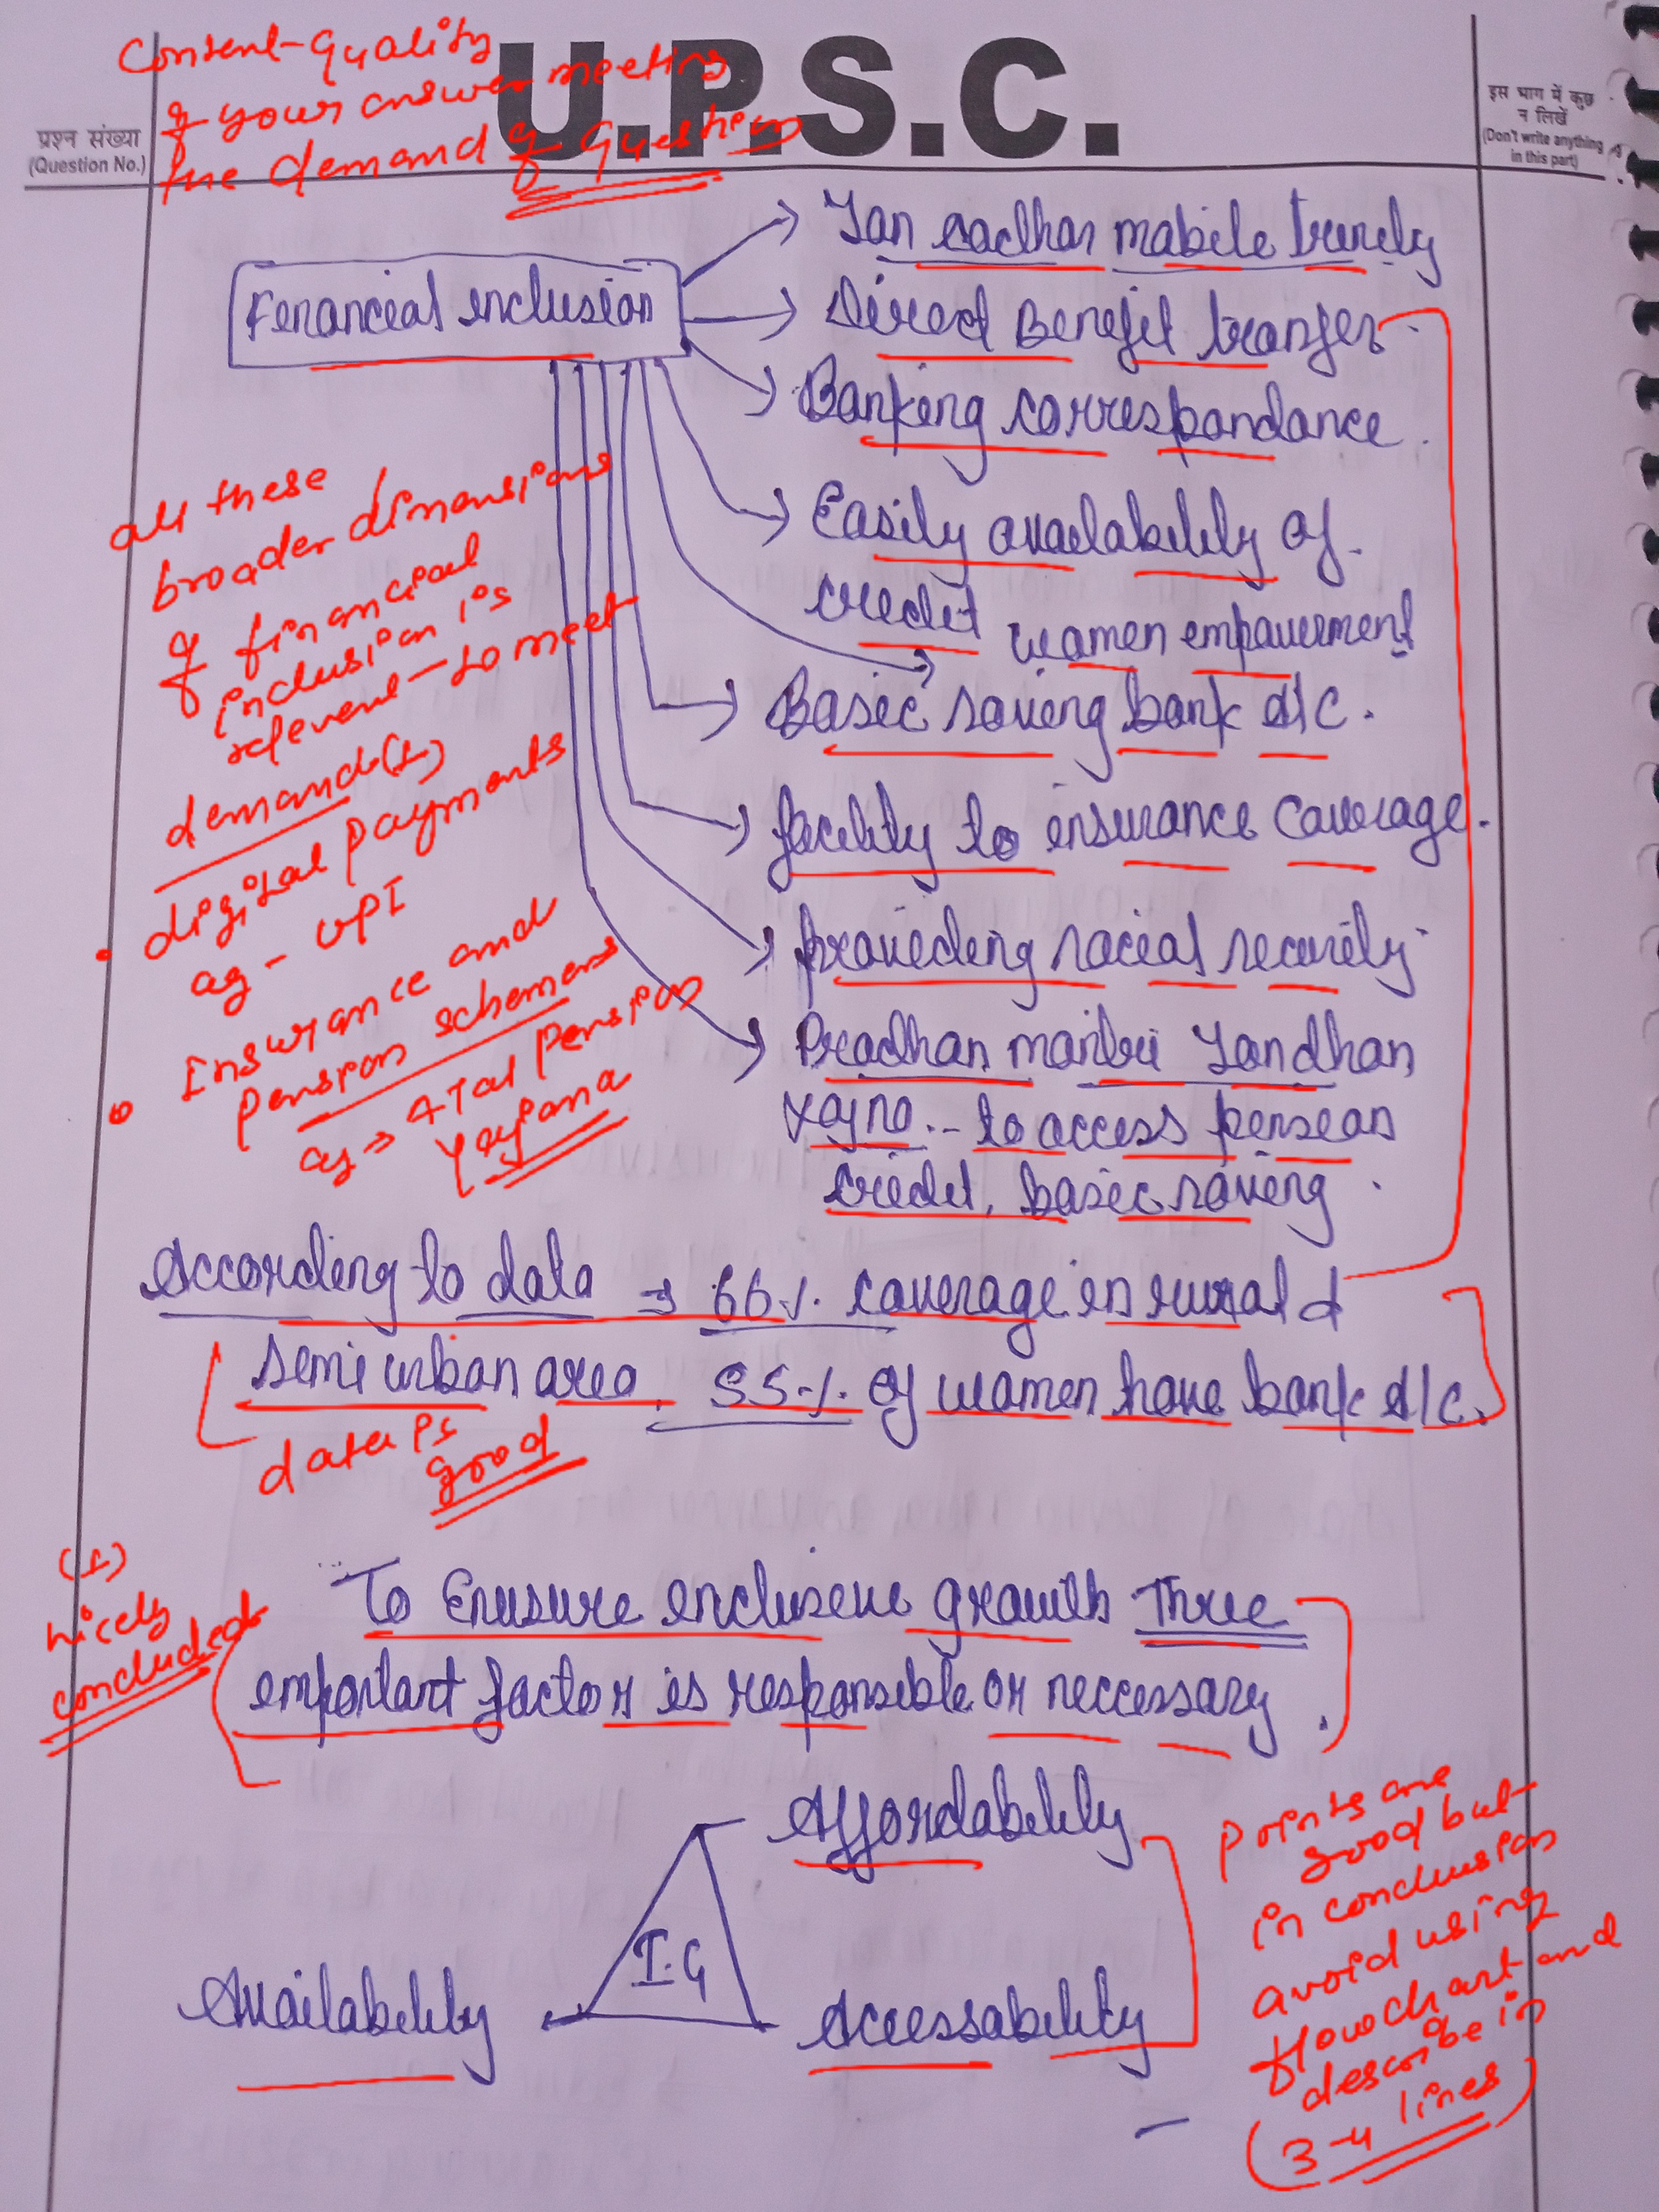 Content-Quality
of your answer meeting
the demand of Question
U.P.S.C.
प्रश्न संख्या
(Question No.)
इस भाग में कुछ
न लिखें
(Don't write anything
in this part)
Financial inclusion
Jan aadhar mobile trinity
Direct Benefit transfer
Banking correspondance
Easily availability of
credit
women empowerment
Basic saving bank A/C.
facility to insurance coverage.
providing social security
Pradhan mantri Jandhan
Yojna. - to access pension
credit, basic saving.
all these
broader dimensions
of financial
inclusion is
relevent to meet
demand (1)
• digital payments
eg - UPI
• Insurance and
pension schemes
eg => Atal pension
Yojana
According to data → 66%. coverage in rural &
semi urban area. 55%. of women have bank A/C.
data is
good
(1)
nicely
concluded
To Enusure inclusive growth Three
important factor is responsible or neccessary.
Affordability
I.G
Availability
Accessability
points are
good but
in conclusion
avoid using
flowchart and
describe in
(3-4 lines)